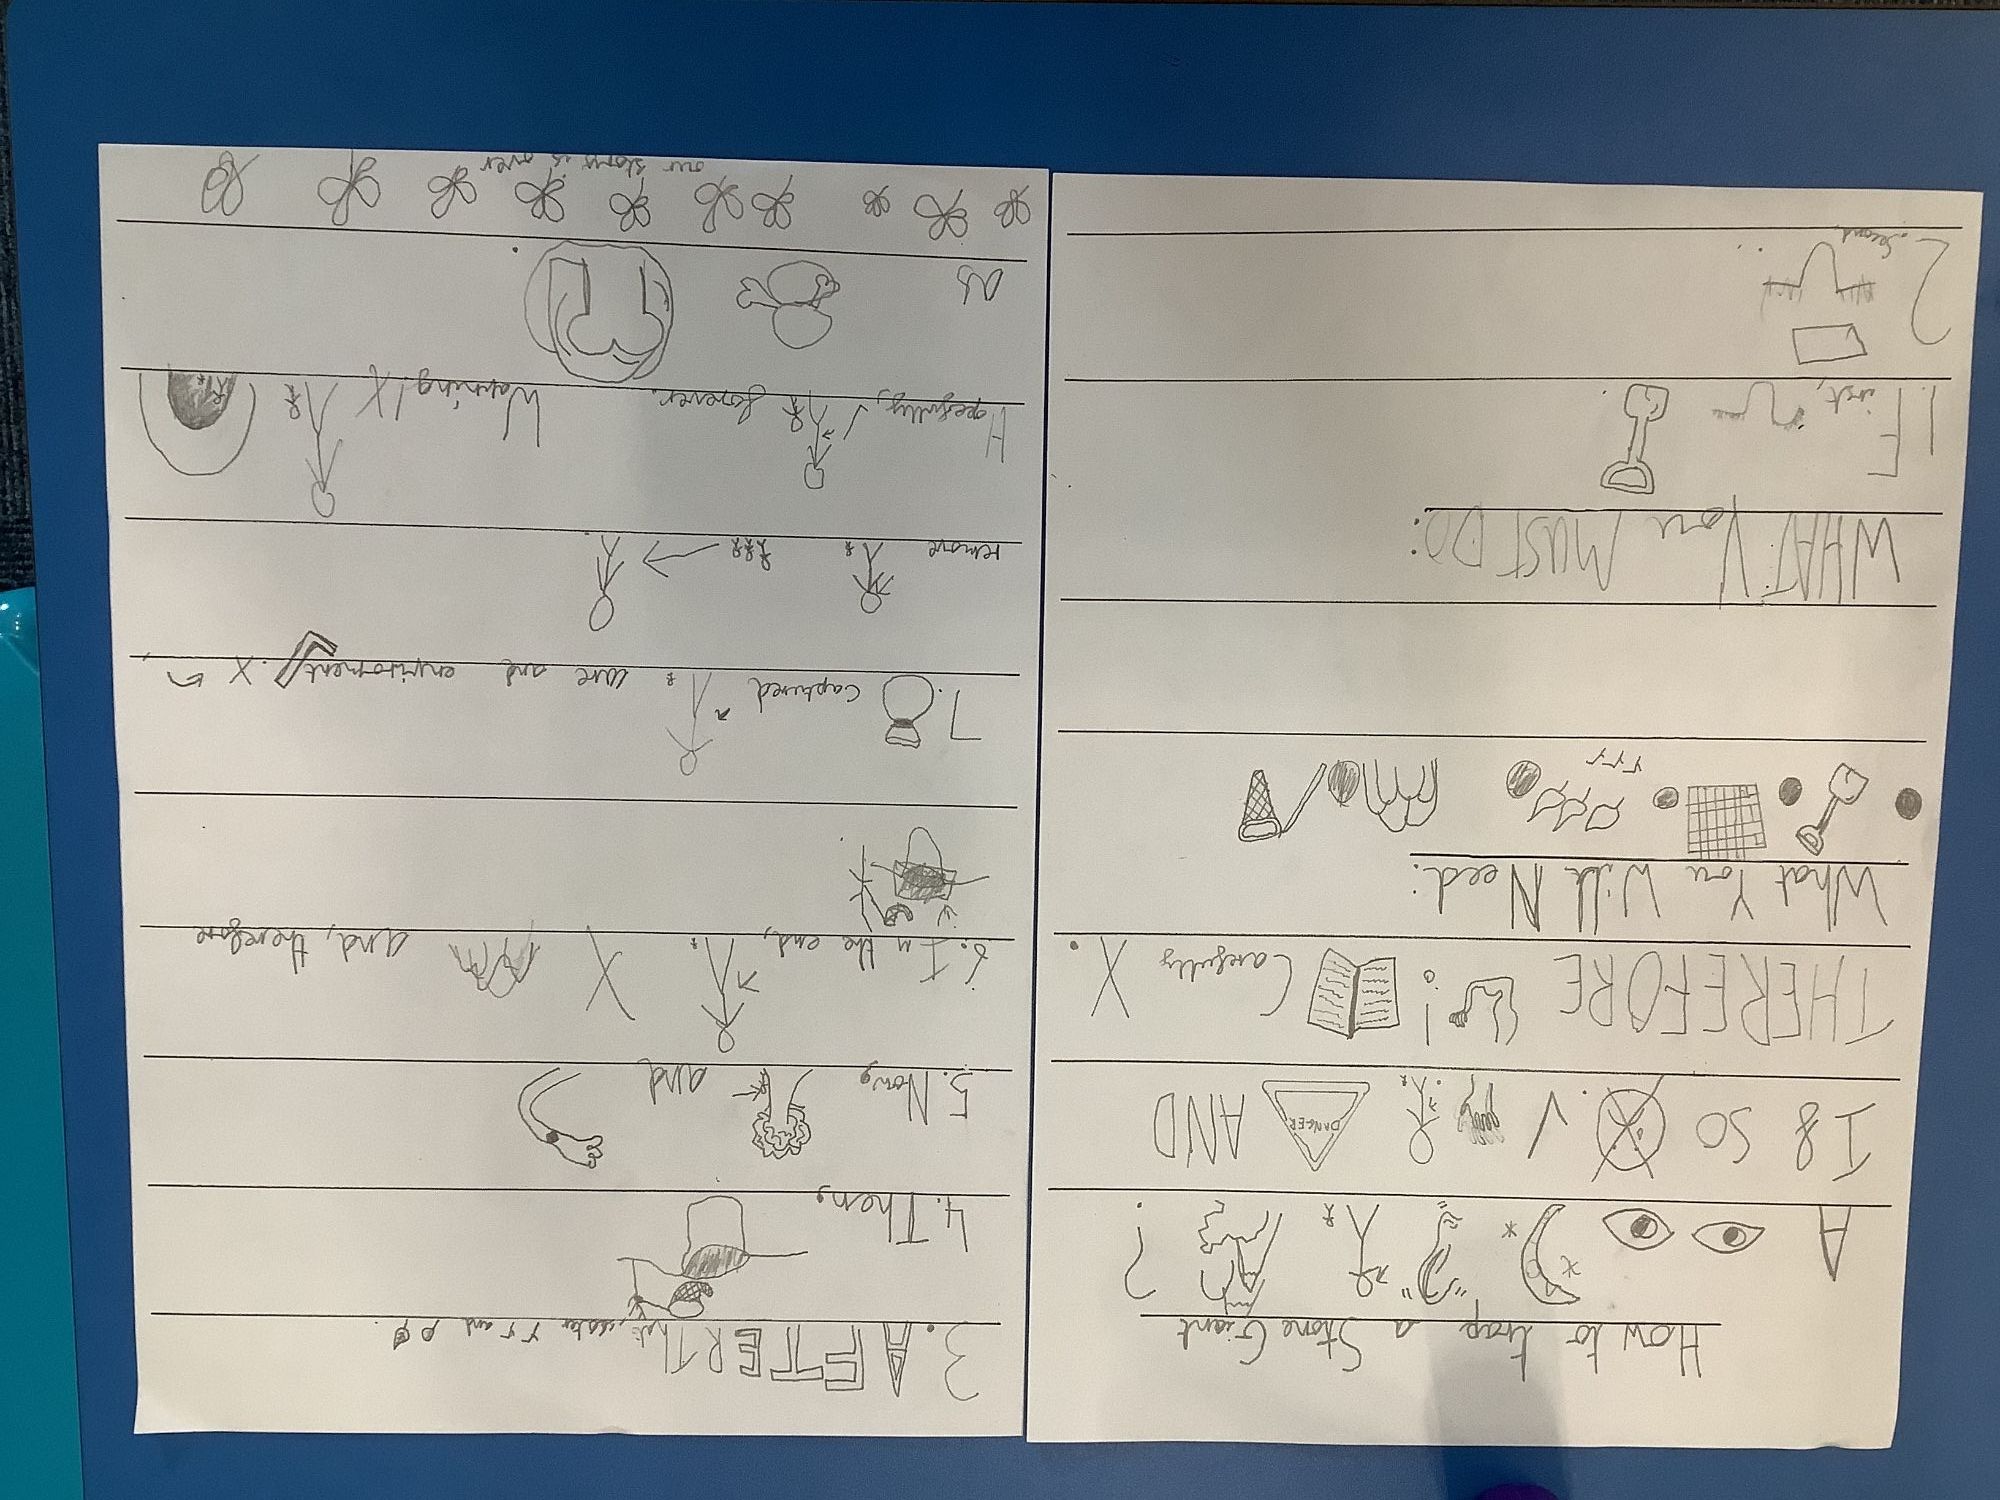 How to trap a Stone Giant
A ?
If so DANGER AND
THEREFORE ! Carefully X.
What You Will Need:
WHAT You MUST DO:
1. First,
2. Second,
3. AFTER That, scatter and
4. Then,
5. Now, and
6. In the end, X and, therefore
7. Captured care and enviroment X.
remove
Hopefully, forever. Warning! X
as
our story is over